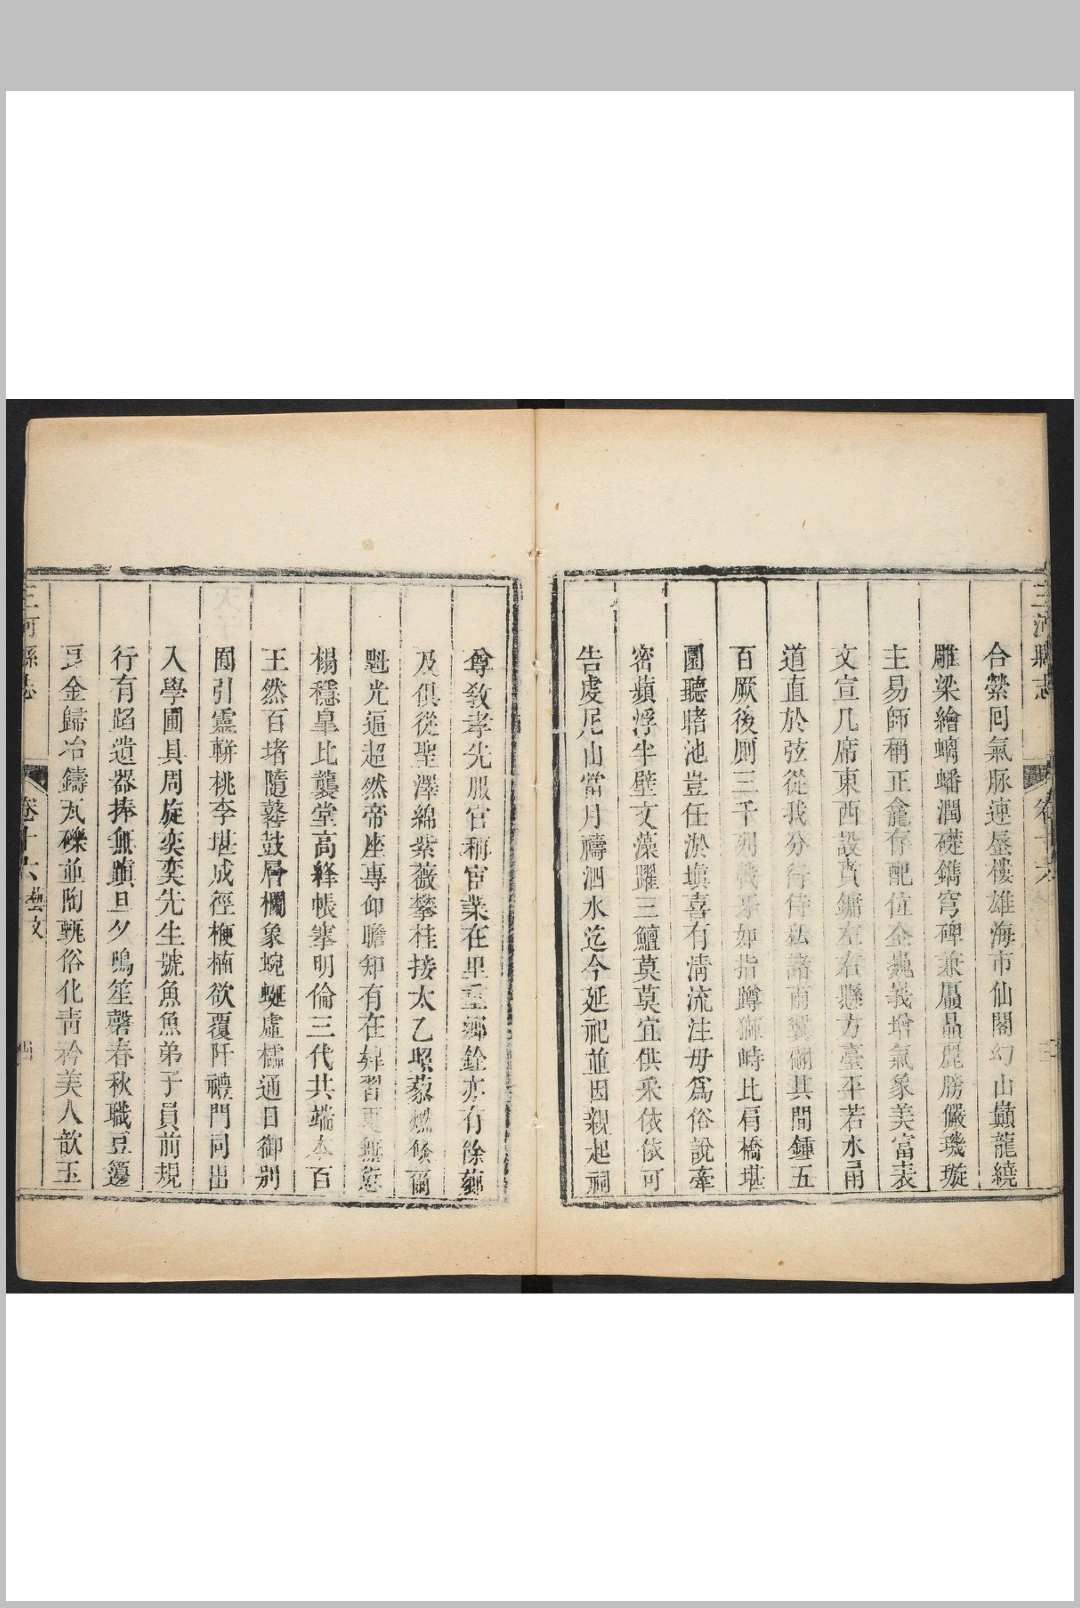 三河縣志
卷十六
合縈囘氣脈連蜃樓雄海市仙閣幻山巔龍繞
雕梁繪螭蟠潤礎鐫穹碑兼贔屭麗勝儼璣璇
主易師稱正龕存配位全巍義增氣象美富表
文宣几席東西設賁鏞左右懸方臺平若水甬
道直於弦從我分行侍諸甫翼翩其間鍾五
百厥後厠三千列戟如指蹲獅峙比肩橋堪
圜聽睹池豈任淤塡喜有淸流注毋爲俗說牽
密蘋浮半璧文藻躍三鱣莫莫宜供采依依可
告虔尼山當月禱泗水迄今延祀並因親起祠
尊敎孝先服官稱宦業在里重鄕銓亦有餘薌
及俱從聖澤綿紫薇攀桂接太乙照藜燃爾
魁光逼超然帝座專仰瞻却有在習更無愆
楊穩臯比襲堂高絳帳搴明倫三代共端本百
王然百堵隨鼛鼓層欄象蜿蜒虛櫺通日御別
囿引靈輧桃李堪成徑楩楠欲覆阡禮門同出
入學圃具周旋奕奕先生號魚魚弟子員前規
行有蹈遺器捧無䠖旦夕鳴笙磬春秋職豆籩
金歸冶鑄瓦礫並陶甄俗化靑衿美人歆玉
三河縣志
卷十六 藝文